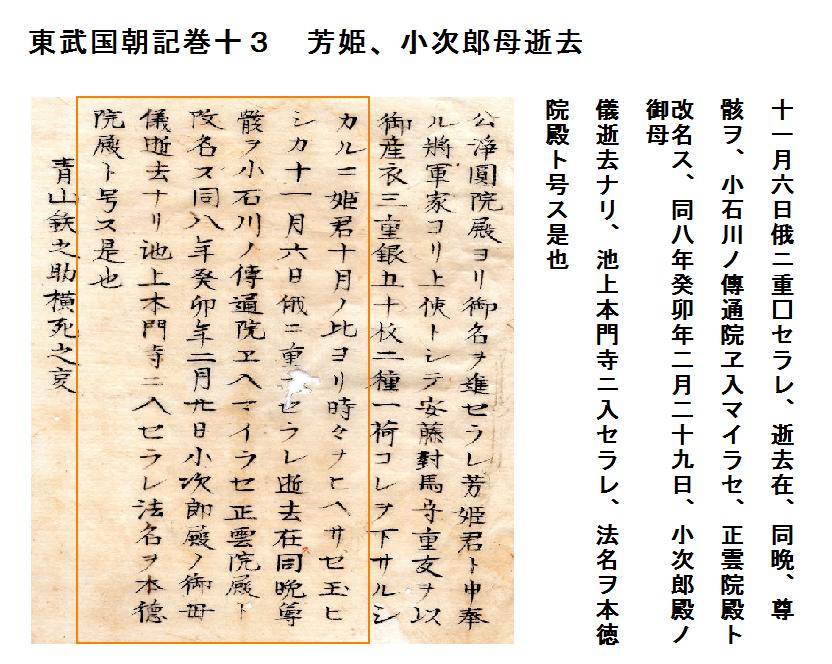 東武国朝記巻十３　芳姫、小次郎母逝去
十一月六日俄ニ重口セラレ、逝去在、同晩、尊
骸ヲ、小石川ノ傳通院ヱ入マイラセ、正雲院殿ト
改名ス、同八年癸卯年二月二十九日、小次郎殿ノ
御母
儀逝去ナリ、池上本門寺ニ入セラレ、法名ヲ本徳
院殿ト号ス是也
公浄圓院殿ヨリ御名ヲ進セラレ芳姫君ト申奉
ル將軍家ヨリ上使トシテ安藤對馬守重友ヲ以
御産衣三重銀五十枚二種一荷コレヲ下サルシ
カルニ姫君十月ノ比ヨリ時々ナヒヘサセ玉ヒ
シカ十一月六日俄ニ重セラレ逝去在同晩尊
骸ヲ小石川ノ傳通院ヱ入マイラセ正雲院殿ト
改名ス同八年癸卯年二月廿九日小次郎殿ノ御母
儀逝去ナリ池上本門寺ニ入セラレ法名ヲ本徳
院殿ト号ス是也
青山鉄之助横死之亥